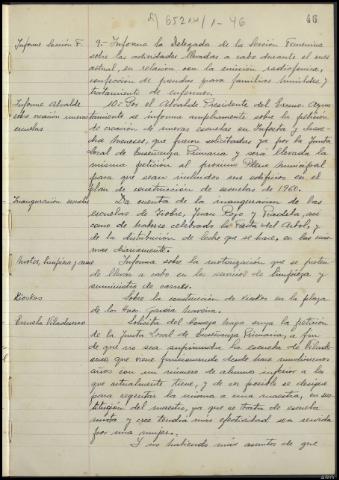 A) 652 M/1-46
46
Informe Sección F.
9- Informa la Delegada de la Sección Femenina
sobre las actividades llevadas a cabo durante el mes
actual, en relación con la emisión radiofónica,
confección de prendas para familias humildes, y
tratamiento de enfermos.
Informe Alcalde
sobre creación nuevas
escuelas
10- Por el Alcalde Presidente del Excmo. Ayun-
tamiento se informa ampliamente sobre la petición
de creación de nuevas escuelas en
que fueron solicitadas ya por la Junta
Local de Enseñanza Primaria y será llevada la
misma petición al próximo Pleno Municipal
para que sean incluidos sus edificios en el
plan de construcción de escuelas de 1960.
Inauguración escuelas
Da cuenta de la inauguración de las
escuelas de Viobre, Juan Rojo y así
como de haberse celebrado la Fiesta del Árbol, y
de la distribución de leche que se hace, en las mis-
mas diariamente.
Motor, limpieza y carnes
Informa sobre la motorización que se preten-
de llevar a cabo en los servicios de limpieza y
suministro de carnes.
Kioskos
Sobre la construcción de kioskos en la plaza
de los Hnos. García Naveira.
Escuela Vilacheriso
Solicita del Consejo haga suya la petición
de la Junta Local de Enseñanza Primaria, a fin
de que no sea suprimida la escuela de
que viene funcionando desde hace muchísimos
años con un número de alumnos inferior a lo
que actualmente tiene, y de ser posible se designe
para regentar la misma a una maestra, en sus-
titución del maestro, ya que se trata de escuela
mixta y cree tendrá más efectividad sea servida
por una mujer.
Y no habiendo más asuntos de que